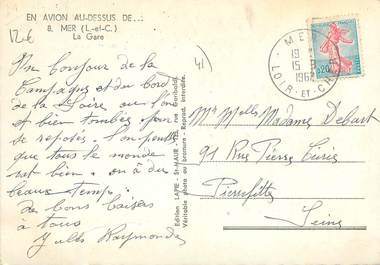 EN AVION AU-DESSUS DE...
8. MER (L.-et-C.)
La Gare
12 €
41
Un bonjour de la
Campagne et du bord
de la Loire ou l'on
est bien tombés pour
se reposer. Son pense
que tous le monde
est bien. on a du
beaux temps.
de bons baisers
a tous
Jules Raymonde
Edition LAPIE - St-MAUR
Véritable photo au bromure - Reprod. interdite.
MER
15
1962
LOIR-ET-CHER
0,20
Mr Melle Madame Debart
91 Rue Pierre Curie
Pierrefitte
Seine